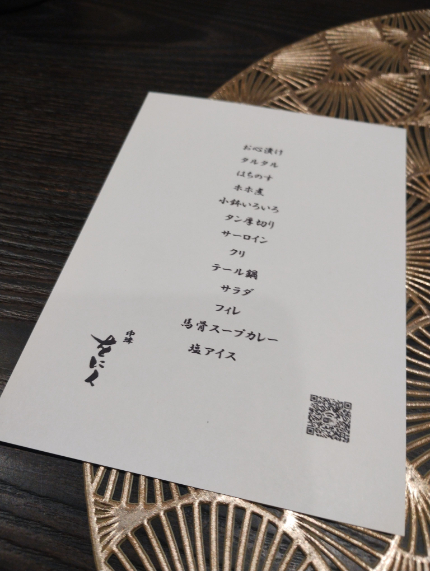 お心漬け
タルタル
はちのす
ホホ煮
小鉢いろいろ
タン厚切り
サーロイン
クリ
テール鍋
サラダ
フィレ
馬骨スープカレー
塩アイス
にく